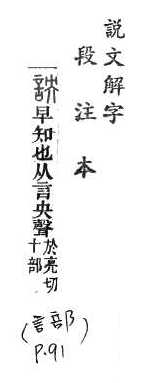 説文解字
段注本
詇早知也从言央聲於亮切
十部
(言部)
P.91